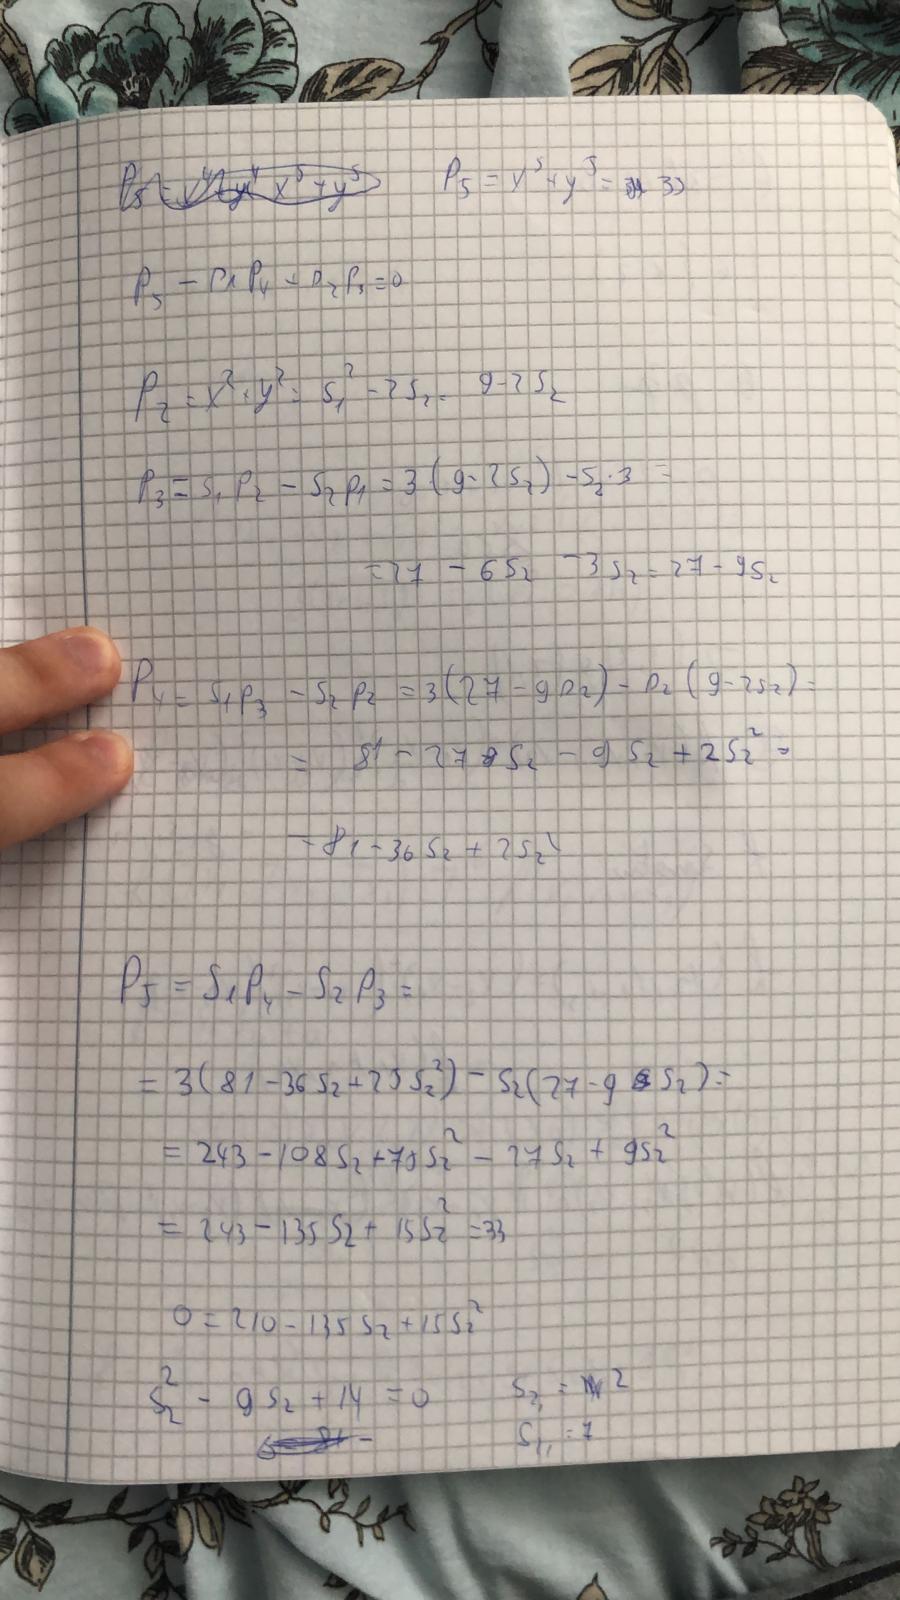 P₅ = x⁵ + y⁵ = 33
P₅ - P₁P₄ + P₂P₃ = 0
P₂ = x² + y² = S₁² - 2S₂ = 9 - 2S₂
P₃ = S₁P₂ - S₂P₁ = 3(9 - 2S₂) - S₂·3 =
= 27 - 6S₂ - 3S₂ = 27 - 9S₂
P₄ = S₁P₃ - S₂P₂ = 3(27 - 9P₂) - P₂(9 - 2S₂) =
= 81 - 27S₂ - 9S₂ + 2S₂² =
= 81 - 36S₂ + 2S₂²
P₅ = S₁P₄ - S₂P₃ =
= 3(81 - 36S₂ + 2S₂²) - S₂(27 - 9S₂) =
= 243 - 108S₂ + 7S₂² - 27S₂ + 9S₂²
= 243 - 135S₂ + 15S₂² = 33
0 = 210 - 135S₂ + 15S₂²
S₂² - 9S₂ + 14 = 0 S₂₁ = 2
= 7